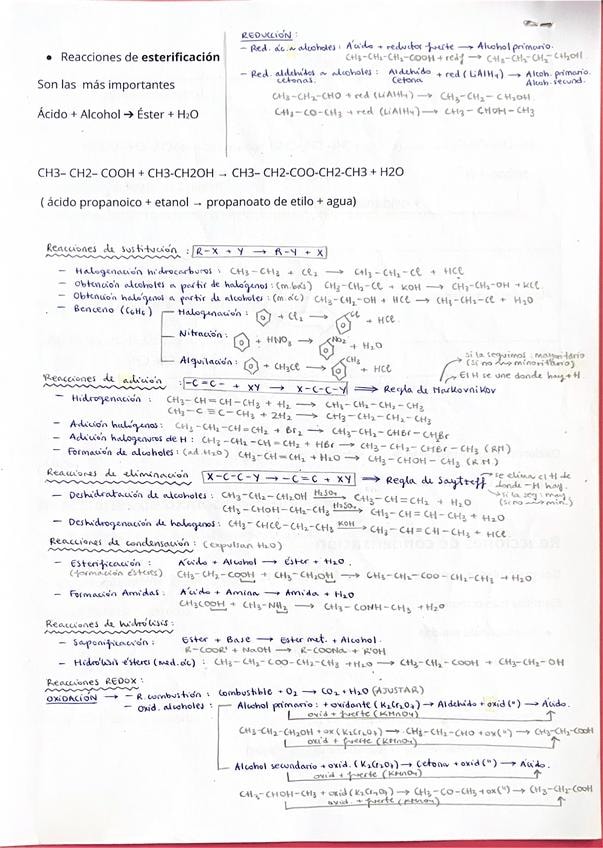 • Reacciones de esterificación
Son las más importantes
Ácido + Alcohol → Éster + H₂O
REDUCCIÓN:
- Red. ác. a alcoholes: Ácido + reductor fuerte → Alcohol primario.
CH₃-CH₂-CH₂-COOH + redf → CH₃-CH₂-CH₂-CH₂OH.
- Red. aldehidos a alcoholes: Aldehido + red (LiAlH₄) → Alcoh. primario.
cetonas. Cetona Alcoh. secund.
CH₃-CH₂-CHO + red (LiAlH₄) → CH₃-CH₂-CH₂OH.
CH₃-CO-CH₃ + red (LiAlH₄) → CH₃-CHOH-CH₃
CH3– CH2– COOH + CH3-CH2OH → CH3– CH2-COO-CH2-CH3 + H2O
( ácido propanoico + etanol → propanoato de etilo + agua)
Reacciones de sustitución: R-X + Y → R-Y + X
- Halogenación hidrocarburos: CH₃-CH₃ + Cl₂ → CH₃-CH₂-Cl + HCl
- Obtención alcoholes a partir de halógenos: (m. bás) CH₃-CH₂-Cl + KOH → CH₃-CH₂-OH + KCl.
- Obtención halógenos a partir de alcoholes: (m. ác) CH₃-CH₂-OH + HCl → CH₃-CH₂-Cl + H₂O
- Benceno (C₆H₆) Halogenación: + Cl₂ → Cl + HCl.
Nitración: + HNO₃ → NO₂ + H₂O
Alquilación: + CH₃Cl → CH₃ + HCl
si la seguimos: mayoritario
(si no → minoritario)
Reacciones de adición: -C=C- + XY → X-C-C-Y ⇒ Regla de Markovnikov
El H se une donde hay + H.
- Hidrogenación: CH₃-CH=CH-CH₃ + H₂ → CH₃-CH₂-CH₂-CH₃
CH₃-C≡C-CH₃ + 2H₂ → CH₃-CH₂-CH₂-CH₃
- Adición halógenos: CH₃-CH₂-CH=CH₂ + Br₂ → CH₃-CH₂-CHBr-CH₂Br
- Adición halogenuros de H: CH₃-CH₂-CH=CH₂ + HBr → CH₃-CH₂-CHBr-CH₃ (RM)
- Formación de alcoholes: (ad. H₂O) CH₃-CH=CH₂ + H₂O → CH₃-CHOH-CH₃ (RM)
Reacciones de eliminación X-C-C-Y → -C=C- + XY ⇒ Regla de Saytzeff
se elimina el H de donde -H hay.
si la seg: may.
(si no → min.)
- Deshidratación de alcoholes: CH₃-CH₂-CH₂OH H₂SO₄ → CH₃-CH=CH₂ + H₂O
CH₃-CHOH-CH₂-CH₃ H₂SO₄ → CH₃-CH=CH-CH₃ + H₂O
- Deshidrogenación de halógenos: CH₃-CHCl-CH₂-CH₃ KOH → CH₃-CH=CH-CH₃ + HCl.
Reacciones de condensación: (expulsan H₂O)
- Esterificación: Ácido + Alcohol → Éster + H₂O.
(formación ésteres) CH₃-CH₂-COOH + CH₃-CH₂OH → CH₃-CH₂-COO-CH₂-CH₃ + H₂O
- Formación Amidas: Ácido + Amina → Amida + H₂O
CH₃COOH + CH₃-NH₂ → CH₃-CONH-CH₃ + H₂O
Reacciones de hidrólisis:
- Saponificación: Ester + Base → Ester met. + Alcohol.
R-COOR' + NaOH → R-COONa + R'OH
- Hidrólisis ésteres (med. ác): CH₃-CH₂-COO-CH₂-CH₃ + H₂O → CH₃-CH₂-COOH + CH₃-CH₂-OH
Reacciones REDOX:
OXIDACIÓN → - R. combustión: Combustible + O₂ → CO₂ + H₂O (AJUSTAR)
- Oxid. alcoholes: Alcohol primario: + oxidante (K₂Cr₂O₇) → Aldehido + oxid (") → Ácido.
oxid + fuerte (KMnO₄)
CH₃-CH₂-CH₂OH + ox (K₂Cr₂O₇) → CH₃-CH₂-CHO + ox (") → CH₃-CH₂-COOH
oxid + fuerte (KMnO₄)
Alcohol secundario + oxid. (K₂Cr₂O₇) → Cetona + oxid (") → Ácido.
oxid + fuerte (KMnO₄)
CH₃-CHOH-CH₃ + oxid (K₂Cr₂O₇) → CH₃-CO-CH₃ + ox (") → CH₃-CH₂-COOH
oxid. + fuerte (KMnO₄)